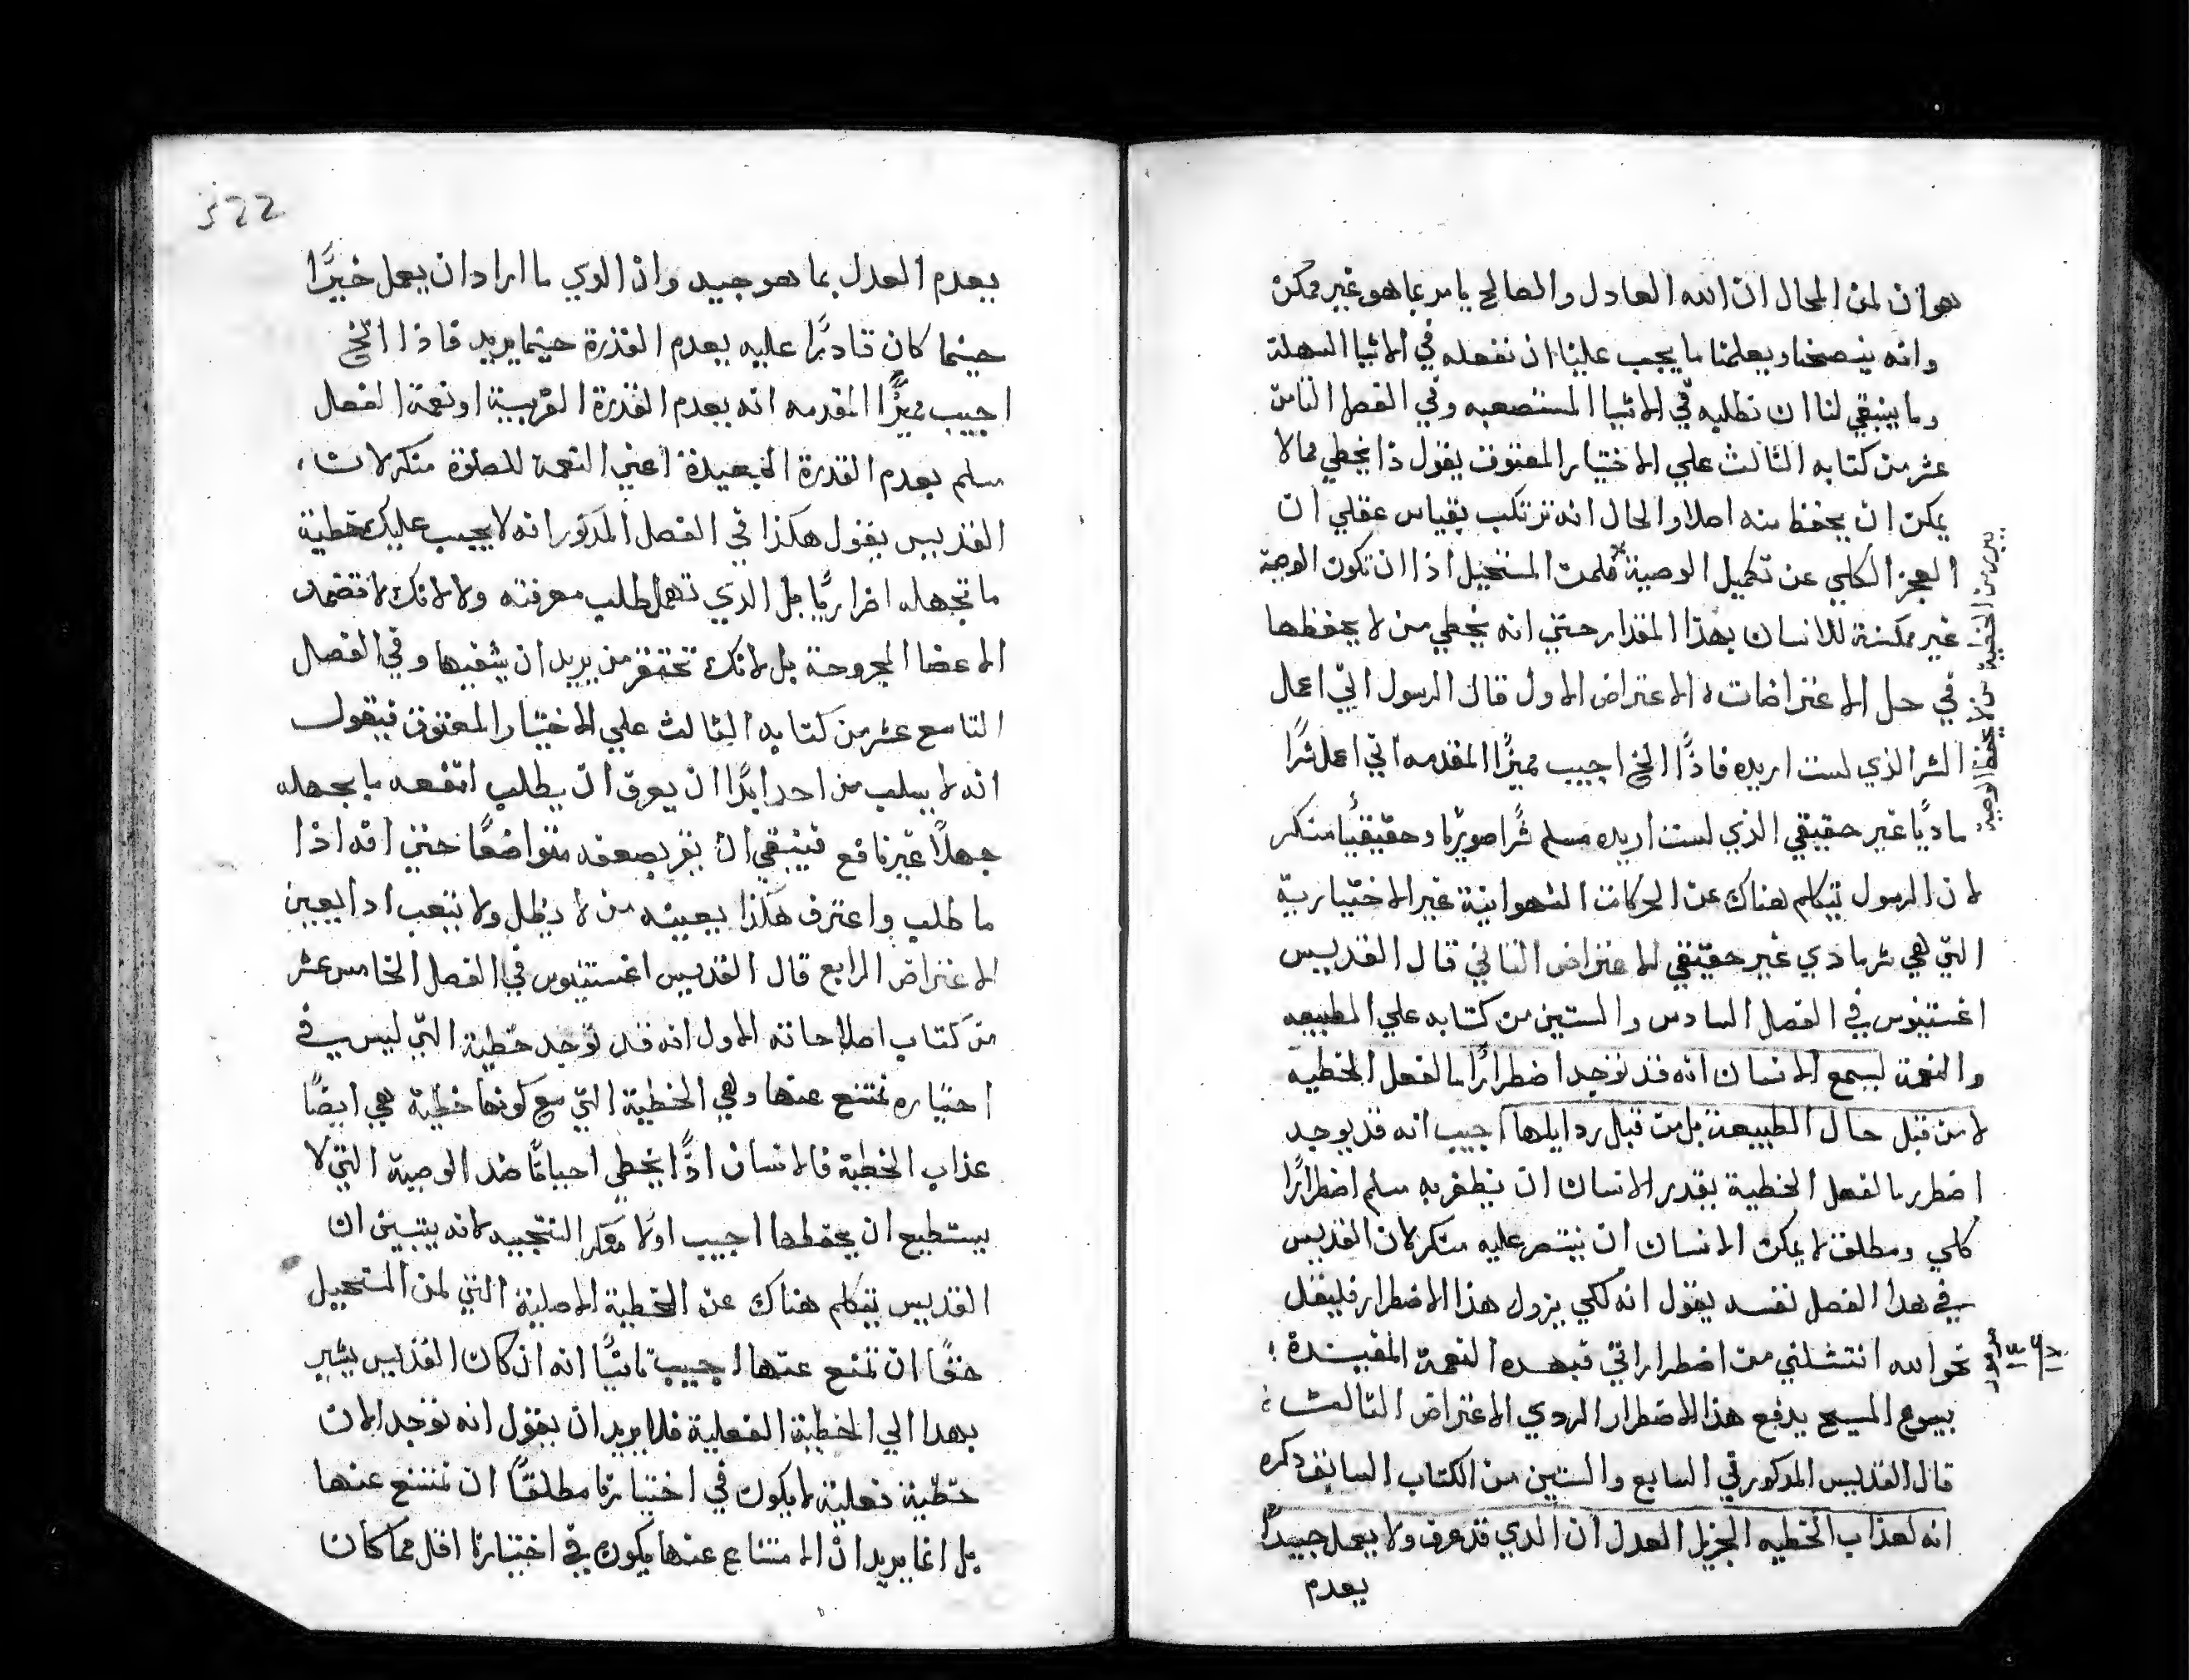 هو ان لمن المحال ان الله العادل والصالح يامر بما هو غير ممكن
وانه ينصحنا ويعلمنا ما يجب علينا ان نفعله في الاشيا السهلة
وما ينبقي لنا ان نطلبه في الاشيا المستصعبه وفي الفصل الثامن
عشر من كتابه الثالث علي الاختيار المعتوق يقول ذا يخطي مما لا
يمكن ان يحفظ منه اصلا والحال انه ترتكب بقياس عقلي ان
العجز الكلي عن تكميل الوصية فلمن المستحيل اذا ان تكون الوصية
غير ممكنة للانسان بهذا المقدار حتي انه يخطي من لا يحفظها
في حل الاعتراضات الاعتراض الاول قال الرسول اني اعمل
الشر الذي لست اريده فاذًا الخ اجيب مميزًا المقدمه اني اعمل شرًا
ماديًا غير حقيقي الذي لست اريده مسلم شرًا صوريًا وحقيقيًا منكر
لان الرسول يتكلم هناك عن الحركات الشهوانية غير الاختيارية
التي هي شر مادي غير حقيقي الاعتراض الثاني قال القديس
اغستينوس في الفصل السادس والستين من كتابه علي الطبيعه
والنعمة ليسمع الانسان انه قد توجد اضطرارًا ما لفعل الخطيه
لا من قبل حال الطبيعة بل من قبل ردايلها اجيب انه قد يوجد
اضطرر ما لفعل الخطية يقدر الانسان ان يظفر به مسلم اضطرارًا
كلي ومطلق لا يمكن الانسان ان ينتصر عليه منكر لان القديس
في هدا الفصل نفسه يقول انه لكي يزول هذا الاضطرار فليقل
نحو الله انتشلني من اضطراراتي فبهده النعمة المقيدة
بيسوع المسيح يدفع هذا الاضطرار الردي الاعتراض الثالث
قال القديس المدكور في السابع والستين من الكتاب السابق دكره
انه لعذاب الخطيه الجزيل العدل ان الدي قد عرف ولا يعمل جيدًا
يعدم
من لا يحفظ الوصية
مزمور
322
بعدم العدل بما هو جيد وان الدي ما اراد ان يعمل خيرًا
حينما كان قادرًا عليه يعدم القدرة حينما يريد فاذا الخ
اجيب مميزًا المقدمه انه يعدم القدرة القريبة او نعمة الفعل
مسلم يعدم القدرة البعيدة اعني النعمة للصلوة منكر لان
القديس يقول هكذا في الفصل المدكور انه لا يحسب عليك خطية
ما تجهله اضراريًا بل الذي تهمل طلب معرفته ولا لانك لا تضمد
الاعضا المجروحة بل لانك تحتقر من يريد ان يشفيها وفي الفصل
التاسع عشر من كتابه الثالث علي الاختيار المعتوق فيقول
انه لا يسلب من احد ابدًا ان يعرف ان يطلب انفعه ما يجهله
جهلًا غير نافع فينبقي ان يقر بضعفه متواضعًا حتي انه اذا
ما طلب واعترف هكذا يعينه من لا يضل ولا يتعب ادا يعين
الاعتراض الرابع قال القديس اغستينوس في الفصل الخامس عشر
من كتاب اصلاحاته الاول انه قد توجد خطية التي ليس في
اختياره نمتنع عنها وهي الخطية التي مع كونها خطية هي ايضًا
عذاب الخطية فالانسان اذًا يخطي احيانًا ضد الوصية التي لا
يستطيع ان يحفظها اجيب اولًا منكر النتيجة لانه يتبين ان
القديس يتكلم هناك عن الخطية الاصلية التي لمن المستحيل
حقًا ان نمتنع عنها اجيب ثانيًا انه ان كان القديس يشير
بهدا الي الخطية الفعلية فلا يريد ان يقول انه توجد الان
خطية فعلية لا يكون في اختيارنا مطلقًا ان نمتنع عنها
بل انما يريد ان الامتناع عنها يكون في اختيارنا اقل مما كان